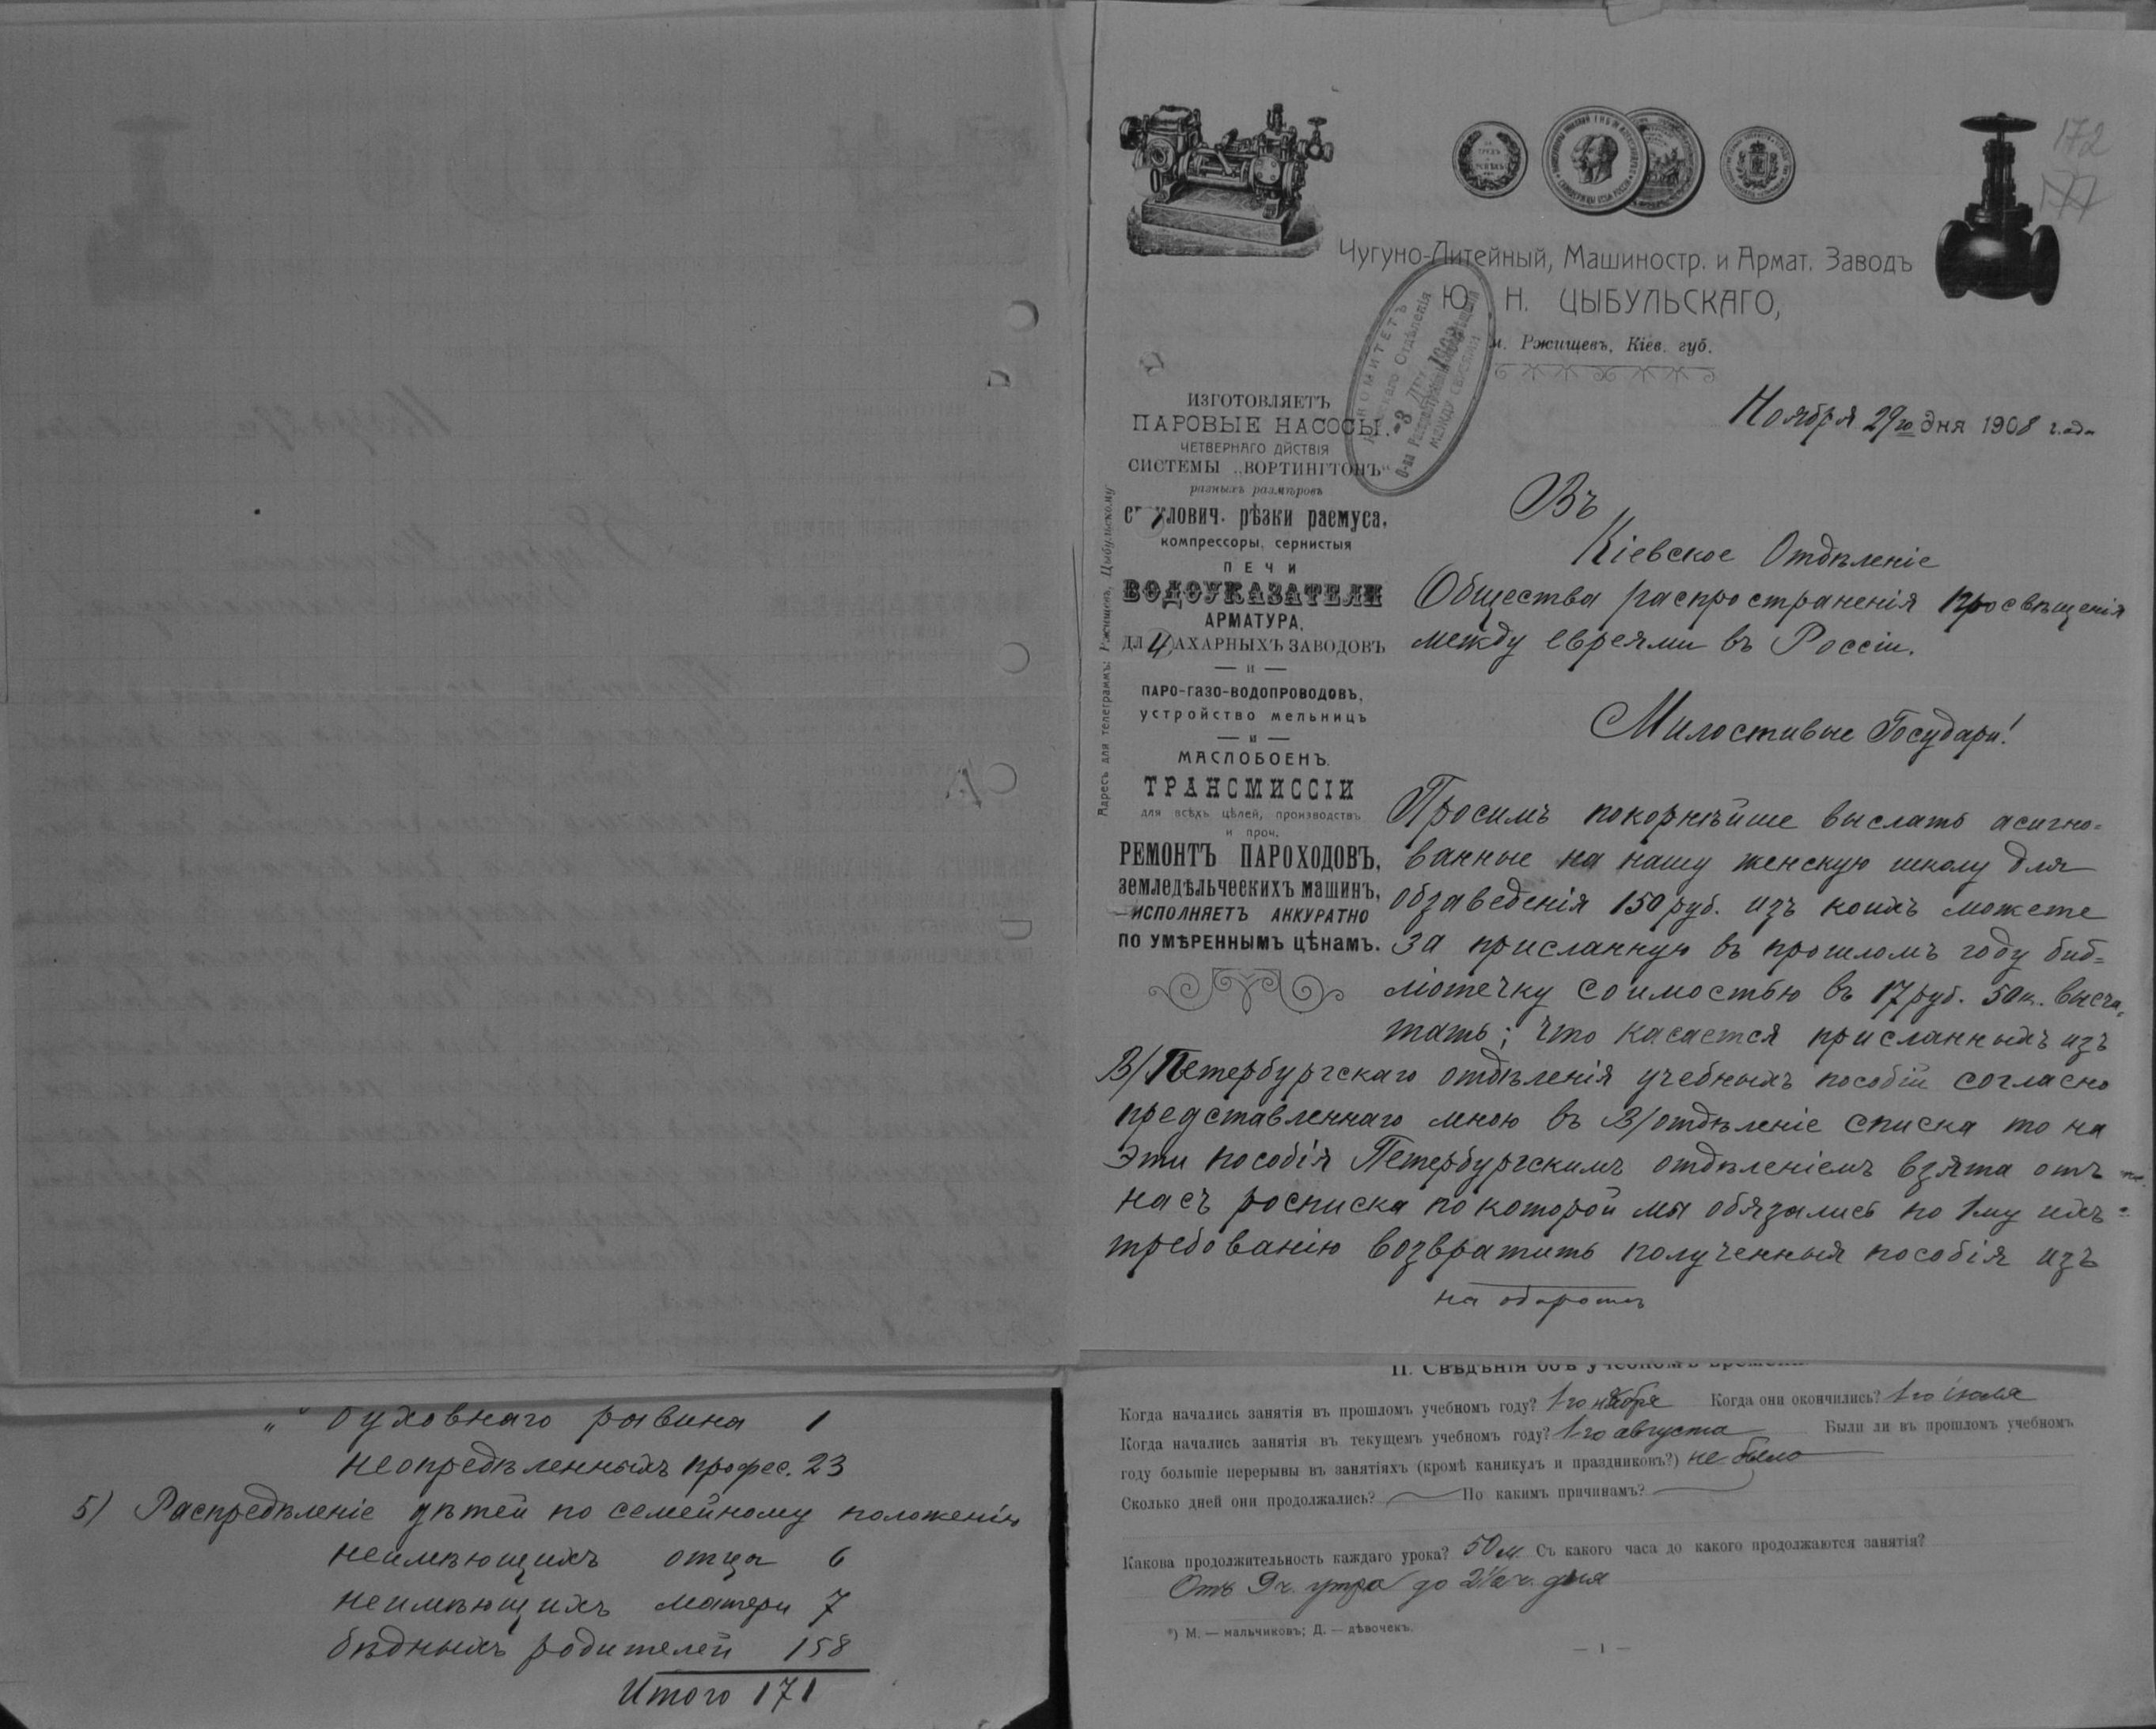 172
177
Чугуно-Литейный, Машиностр. и Армат. Заводъ
Ю. Н. ЦЫБУЛЬСКАГО,
м. Ржищевъ, Кіев. губ.
КОМИТЕТЪ
Отдѣленія
3 ДЕК 1908
О-ва Распространенія
МЕЖДУ ЕВРЕЯМИ
Ноября 29го дня 1908 года
ИЗГОТОВЛЯЕТЪ
ПАРОВЫЕ НАСОСЫ.
ЧЕТВЕРНАГО ДЙСТВІЯ
СИСТЕМЫ „ВОРТИНГТОНЪ“
разныхъ размѣровъ
рѣзки расмуса,
компрессоры, сернистыя
ПЕЧИ
ВОДОУКАЗАТЕЛИ
АРМАТУРА,
САХАРНЫХЪ ЗАВОДОВЪ
— и —
ПАРО-ГАЗО-ВОДОПРОВОДОВЪ,
устройство мельницъ
— и —
МАСЛОБОЕНЪ.
ТРАНСМИССІИ
для всѣхъ цѣлей, производствъ
и проч.
РЕМОНТЪ ПАРОХОДОВЪ,
земледѣльческихъ машинъ,
—ИСПОЛНЯЕТЪ АККУРАТНО
ПО УМѢРЕННЫМЪ ЦѢНАМЪ.
Адресъ для телеграммъ: Ржищевъ, Цыбульскому
Въ
Кіевское Отдѣленіе
Общества распространенія просвѣщенія
между евреями въ Россіи.
Милостивые Государи!
Просимъ покорнѣйше выслать асигно=
ванные на нашу женскую школу для
обзаведенія 150 руб. изъ коихъ можете
за присланную въ прошломъ году биб=
ліотечку соимостью въ 17 руб. 50к. высчи=
тать; что касается присланныхъ изъ
В/Петербургскаго отдѣленія учебныхъ пособій согласно
представленнаго мною въ В/отдѣленіе списка то на
эти пособія Петербургскимъ отдѣленіемъ взята отъ
насъ росписка по которой мы обязались по 1му ихъ
требованію возвратить полученныя пособія изъ
на оборотѣ
„ духовнаго равина 1
неопредѣленныхъ профес. 23
5) Распредѣленіе дѣтей по семейному положенію
неимѣющихъ отца 6
неимѣющихъ матери 7
бѣдныхъ родителей 158
Итого 171
II. Свѣдѣнія объ учебномъ времени.
Когда начались занятія въ прошломъ учебномъ году? 1-го ноября Когда они окончились? 1-го іюля
Когда начались занятія въ текущемъ учебномъ году? 1-го августа Были ли въ прошломъ учебномъ
году большіе перерывы въ занятіяхъ (кромѣ каникулъ и праздниковъ?) не было
Сколько дней они продолжались? По какимъ причинамъ?
Какова продолжительность каждаго урока? 50 м. Съ какого часа до какого продолжаются занятія?
Отъ 9 ч. утра до 2½ ч. дня
*) М. — мальчиковъ; Д. — дѣвочекъ.
— 1 —